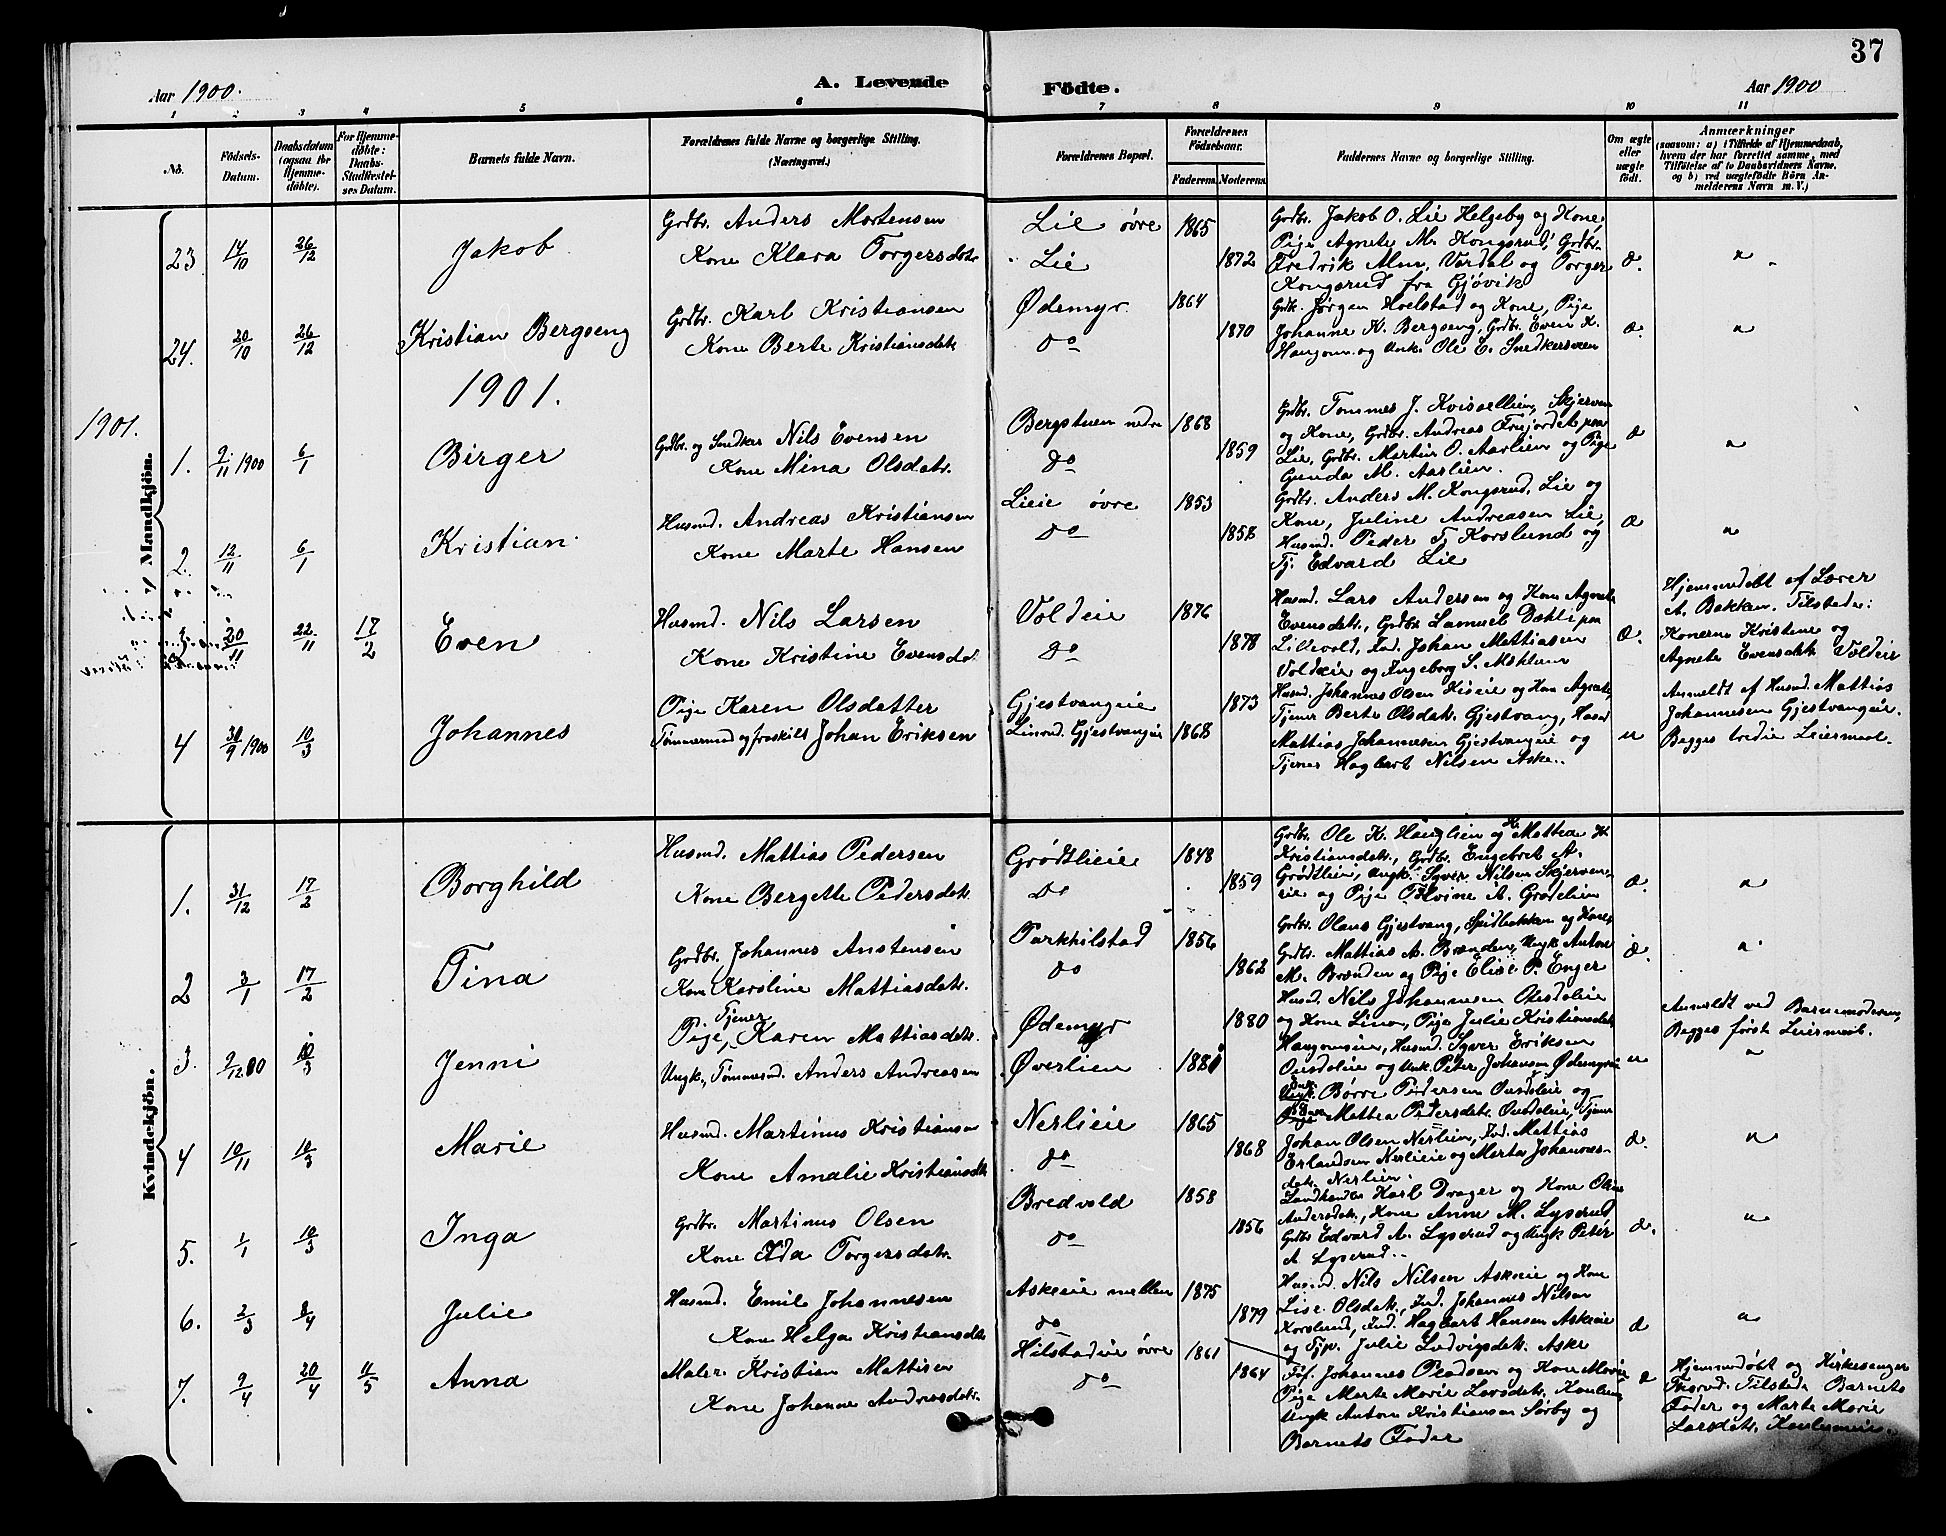 37
Aar 1900.
A. Levende
Födte.
Aar 1900
1 2 3 4 5 6 7 8 9 10 11
No.
Födsels-Datum.
Daabsdatum (ogsaa for Hjemme-døbte).
For Hjemme-døbte: Daabs-Stadfæstel-ses Datum.
Barnets fulde Navn.
Forældrenes fulde Navne og borgerlige Stilling.
(Næringsvei.)
Forældrenes Bopæl.
Forældrenes Födselsaar.
Faderens. Moderens.
Faddernes Navne og borgerlige Stilling.
Om ægte eller uægte født.
Anmærkninger
(saasom: a) i Tilfælde af Hjemmedaab, hvem der har forrettet samme, med Tilföielse af to Daabsvidners Navne. og b) ved uægtefödte Börn Anmelderens Navn m. V.)
Mandkjön.
23. 14/10 26/12 Jakob
Grdbr. Anders Mortensen
Kone Klara Torgersdatr.
Lie øvre 1865
Lie 1872
Grdbr. Jakob O. Lie Helgeby og Kone,
Pige Agnete M. Kongsrud, Grdbr.
Fredrik Alm, Vardal og Torger
Kongsrud fra Gjøvik
æ. "
24. 20/10 26/12 Kristian Bergseng
Grdbr. Karl Kristiansen
Kone Berte Kristiansdatr.
Ødemyr 1864
do 1870
Grdb. Jørgen Hoelstad og Kone, Pige
Johanne K. Bergseng, Grdbr. Even K.
Haugom og Unk. Ole E. Snedkersveen
æ. "
1901.
1901.
1. 9/11 1900 6/1 Birger
Grdbr. og Snedker Nils Evensen
Kone Mina Olsdatr.
Bergstuen nedre 1868
do 1859
Grdbr. Tommes J. Kvisellien, Skjerven
og Kone, Grdbr. Andreas
Lie, Grdbr. Martin O. Aarlien og Pige
Gunda M. Aarlien.
æ "
2. 12/11 6/1 Kristian
Husmd. Andreas Kristiansen
Kone Marte Hansen
Lieie øvre 1853
do 1858
Grdbr. Anders M. Kongsrud, Lie og
Kone, Juline Andreasen Lie,
Husmd. Peder T. Korslund og
Tj. Edvard Lie
æ "
3. 20/11 22/11 17/2 Even
Husmd. Nils Larsen
Kone Kristine Evensdat.
Voldeie 1876
do 1878
Husmd. Lars Andersen og Kone Agnete
Evensdatr., Grdbr. Samuel Dæhli paa
Lillevold, Ind. Johan Mattiasen
Voldeie og Ingeborg S.
æ.
Hjemmedøbt af Lærer
A. Bakken. Tilstede:
Konerne Kristine og
Agnete Evensdatr. Voldeie
4 30/9 1900 10/3 Johannes
Pige Karen Olsdatter
Tømmermd og fraskilt Johan Eriksen
Gjestvangeie 1873
Gjestvangeie 1868
Husmd. Johannes Olsen Kiseie og Kone Agnete,
Tjener Berte Olsdatr. Gjestvang, Husmd
Mattias Johannesen Gjestvangeie og
Tjener Hagbart Nilsen Aske..
u
Anmeldt af Husmd. Mattias
Johannesen Gjestvangeie.
Begges tredie Leiermaal.
Kvindekjön.
1. 31/12 17/2 Borghild
Husmd. Mattias Pedersen
Kone Bergette Pedersdatr.
Grødtlieie 1848
do 1859
Grdbr. Ole K. Hauglien og K. Mattea K
Kristiansdatr., Grdbr. Engebret A.
Grødtlien, Ungk. Syver Nilsen Skjerven-
eie og Pige Oline A. Grødtlien
æ. "
2 3/1 17/2 Tina
Grdbr. Johannes Anstensen
Kone Karoline Mattiasdatr.
Parkhilstad 1856
do 1862
Grdbr. Olaus Gjestvang, Spidbakken og Kone,
Grdbr. Mattias A. Brænden, Ungk. Anton
M. Brænden og Pige Elise P. Enger
æ. "
3. 9/12 00 10/3 Jenni
Tjener
Pige, Karen Mattiasdatr.
Ungk., Tømmermd. Anders Andreasen
Ødemyr 1880
Øverlien 1881
Husmd. Nils Johannesen Ousdeleie
og Kone Lina, Pige Julie Kristiansdatr
Haugomseie, Husmd. Syver Eriksen
Ousdeleie og Unk. Peter Johansen Ødemyr
u
Anmeldt ved Barnemoderen,
Begges første Leiermaal.
"
4 10/11 10/3 Marie
Husmd. Martinus Kristiansen
Kone Amalie Kristiansdatr
Nerlieie 1865
do 1868
Børre Pedersen Ousdeleie og
Mattea Pedersdatr. Ousdeleie, Tjener
Johan Olsen Nerlien, Ind. Mattias
Erlandsen Nerlieie og Marta Johannes-
datr. Nerlien.
æ. "
5. 1/1 10/3 Inga
Grdbr. Martinus Olsen
Kone Ida Torgersdatr.
Bredvold 1858
do 1856
Landhandler Karl Drager og Kone Oline
Andersdatr., Kone Anne M. Lyserud
Grdbr Edvard A. Lyserud og Ungk Peter
A Lyserud..
æ. "
6. 2/3 8/4 Julie
Husmd. Emil Johannesen
Kone Helga Kristiansdatr
Askeeie mellem 1875
do 1879
Husmd. Nils Nilsen Askeeie og Kone
Lise Olsdatr., Ind. Johannes Nilsen
Korslund, Ind. Hagbart Hansen Askeeie
og Tjp. Julie Ludvigsdatr. Aske
æ "
7. 9/4 20/4 11/5 Anna
Maler Kristian Mattisen
Kone Johanne Andreasdatr.
Hilstadeie øvre 1861
do 1864
Johannes Pladsen og Kone Marie
Pige Marte Marie Larsdatr.
Ungk Anton Kristiansen Sørby og
Barnets Fader
æ
Hjemmedøbt og Kirkesanger
Tilstede Barnets
Fader og Marte Marie
Larsdatr.